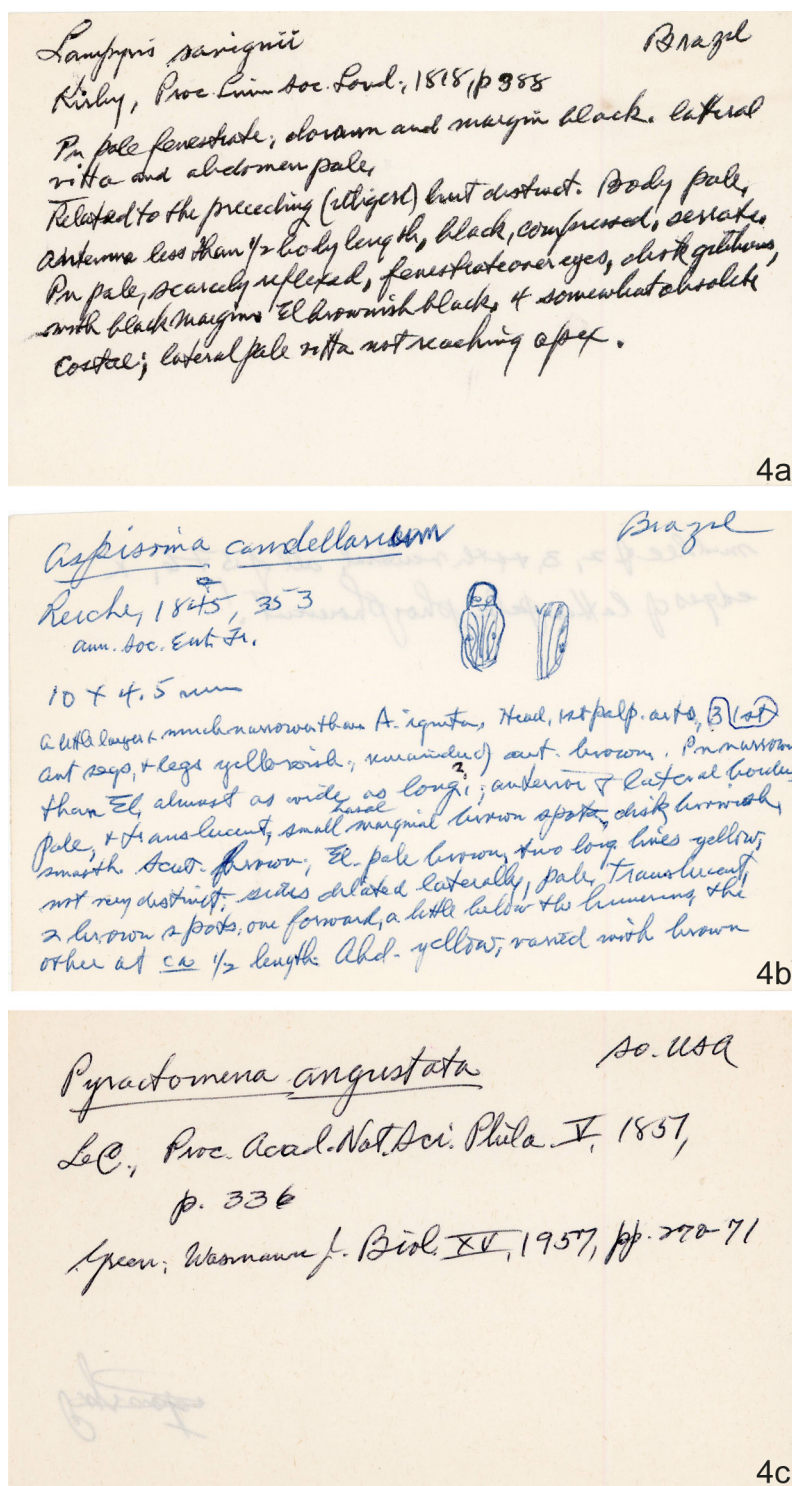 Lampyris savignii Brazil
Kirby, Proc. Linn Soc. Lond., 1818, p 388
Pn pale fenestrate, dorsum and margin black. lateral
vitta and abdomen pale.
Related to the preceding (illigeri) but distinct. Body pale,
antenna less than 1/2 body length, black, compressed, serrate.
Pn pale, scarcely reflexed, fenestrate over eyes, disk gibbous,
with black margin. El brownish black, 4 somewhat obsolete
costae; lateral pale vitta not reaching apex.
4a
Aspisoma candellarium Brazil
Reiche, 1845, 353
ann. Soc. Ent. Fr.
10 X 4.5 mm
a little larger & much narrower than A. ignita. Head, 1st palp. arts, 3 1st
ant segs, & legs yellowish, remainder ant. brown. Pn narrower
than El, almost as wide as long ?; anterior & lateral border
pale, & translucent, small basal marginal brown spots, disk brownish,
smooth. Scut. brown; El. pale brown, two long lines yellow,
not very distinct; sides dilated laterally, pale, translucent,
2 brown spots, one forward, a little below the humerus, the
other at ca 1/2 length. Abd. yellow, varied with brown
4b
Pyractomena angustata so. USA
LeC., Proc. Acad. Nat. Sci. Phila V, 1851,
p. 336
Green, Wasmann J. Biol. XV, 1957, pp. 270-71
4c